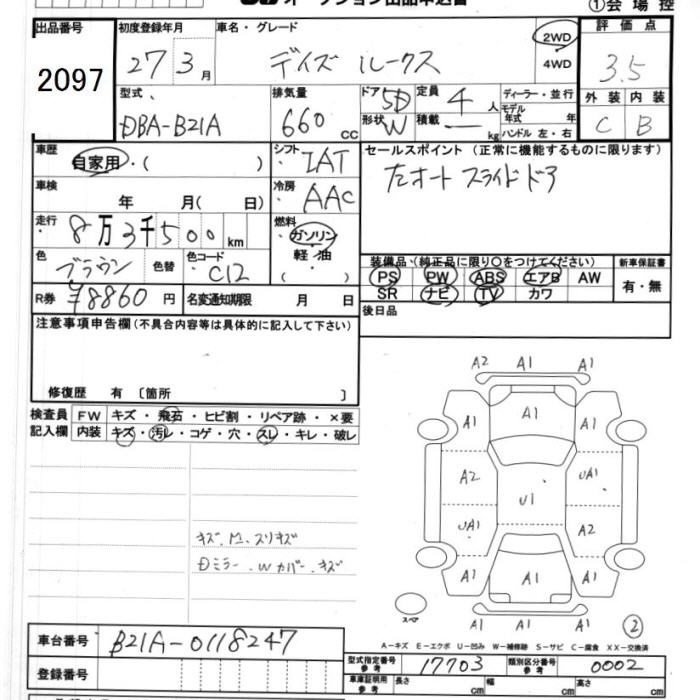 ①会場控
出品番号 初度登録年月 車名・グレード 2WD 評価点
2097 27 3月 デイズ ルークス 4WD 3.5
型式 排気量 ドア 5D 定員 4人 ディーラー・並行 外装 内装
DBA-B21A 660cc 形状 W 積載 ― kg モデル年式 年 ハンドル 左・右 C B
車歴 自家用・( ) シフト IAT セールスポイント (正常に機能するものに限ります)
車検 年 月( 日) 冷房 AAC 左オート スライドドア
走行 8万3千500km 燃料 ガソリン 軽・油 ( )
色 ブラウン 色替 色コード C12 装備品(純正品に限り○をつけてください) 新車保証書
PS PW ABS エアB AW 有・無
R券 ¥8860円 名変通知期限 月 日 SR ナビ TV カワ
注意事項申告欄(不具合内容等は具体的に記入して下さい) 後日品
修復歴 有 〔箇所 〕
検査員 FW キズ・飛石・ヒビ割・リペア跡・×要
記入欄 内装 キズ・汚レ・コゲ・穴・スレ・キレ・破レ
A2 A1 A1
A1 A1 A1
A2 UA1
U1
UA1 A2
A1 A1 A1
A1 A1 A1
キズ.M.スリキズ
Dミラー.Wカバー.キズ
スペア
②
A-キズ E-エクボ U-凹み W-補修跡 S-サビ C-腐食 XX-交換済
車台番号 B21A-0118247
型式指定番号 参考 17703 類別区分番号 参考 0002
登録番号 車庫証明用 参考 長さ cm 幅 cm 高さ cm